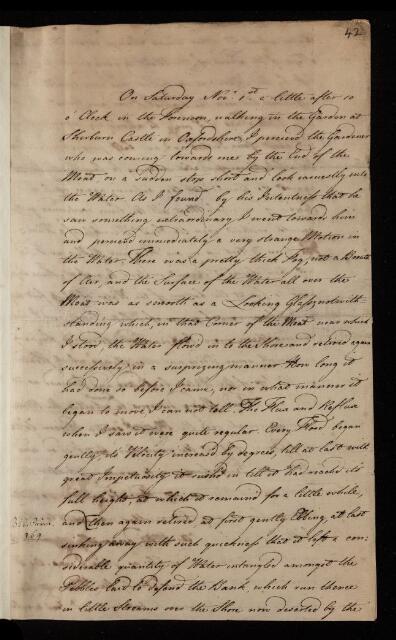 42
On Saturday Nov.r 1.st a little after 10
o' Clock in the Forenoon, walking in the Garden at
Sherburn Castle in Oxfordshire, I perceived the Gardener
who was coming towards me by the End of the
Moat on a sudden stop short and look earnestly into
the Water As I found by his Intentness that he
saw something extraordinary, I went towards him
and perceived immediately a very strange Motion in
the Water. There was a pretty thick Fog, not a Breath
of Air, and the Surface of the Water all over the
Moat was as smooth as a Looking Glass; notwith
standing which, in that Corner of the Moat near which
I stood the Water flow'd in to the Shore and retired again
successively in a surprizing manner How long it
had done so before I came, nor in what manner it
began to move I can not tell. The Flux and Reflux
when I saw it were quite regular. Every Flood began
gently, its Velocity increased by degrees, till at last with
great Impetuosity it rush'd in till it had reach'd its
full height, at which it remained for a little while,
and then again retired at first gently Ebbing, at last
sinking away with such quickness that it left a con:
siderable quantity of Water intangled amongst the
Pebbles laid to defend the Bank, which run thence
in little Streams over the Shore now deserted by the